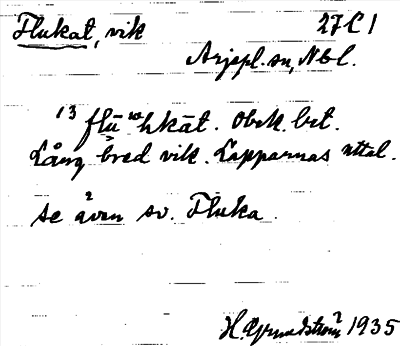 Flukat, vik 27C1
Arjepl. sn, Nbl.
13 flūhkăt. Obek. bet.
Lång bred vik. Lapparnas uttal.
se även sv. Fluka.
H. Grundström 1935